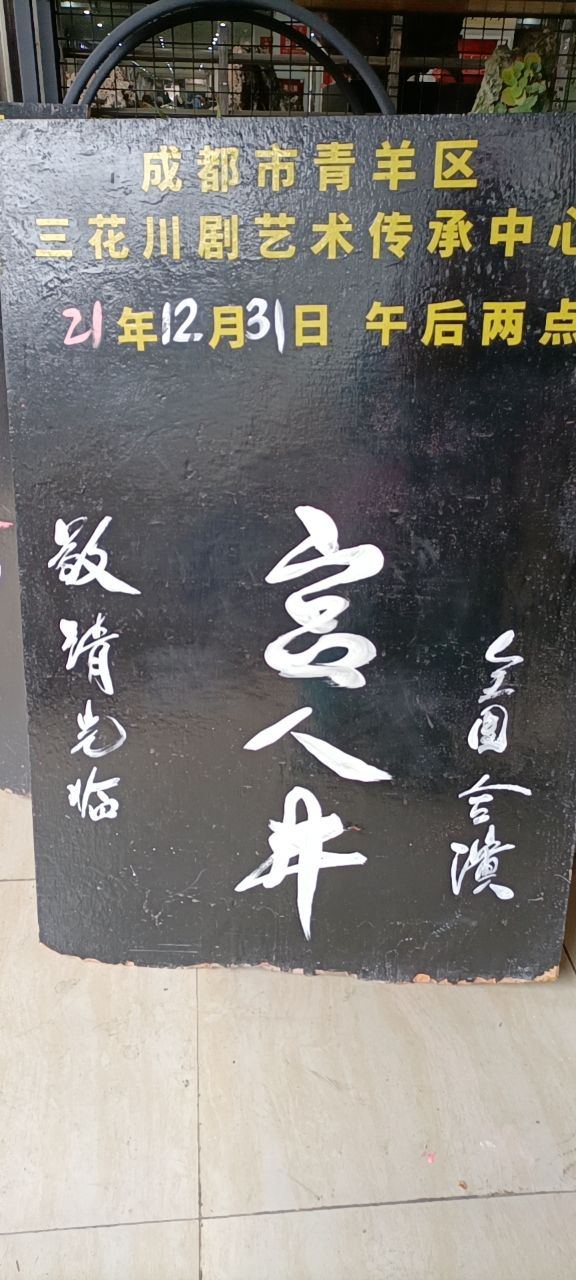 成都市青羊区
三花川剧艺术传承中心
21年12月31日 午后两点
全团合演
宫人井
敬请光临